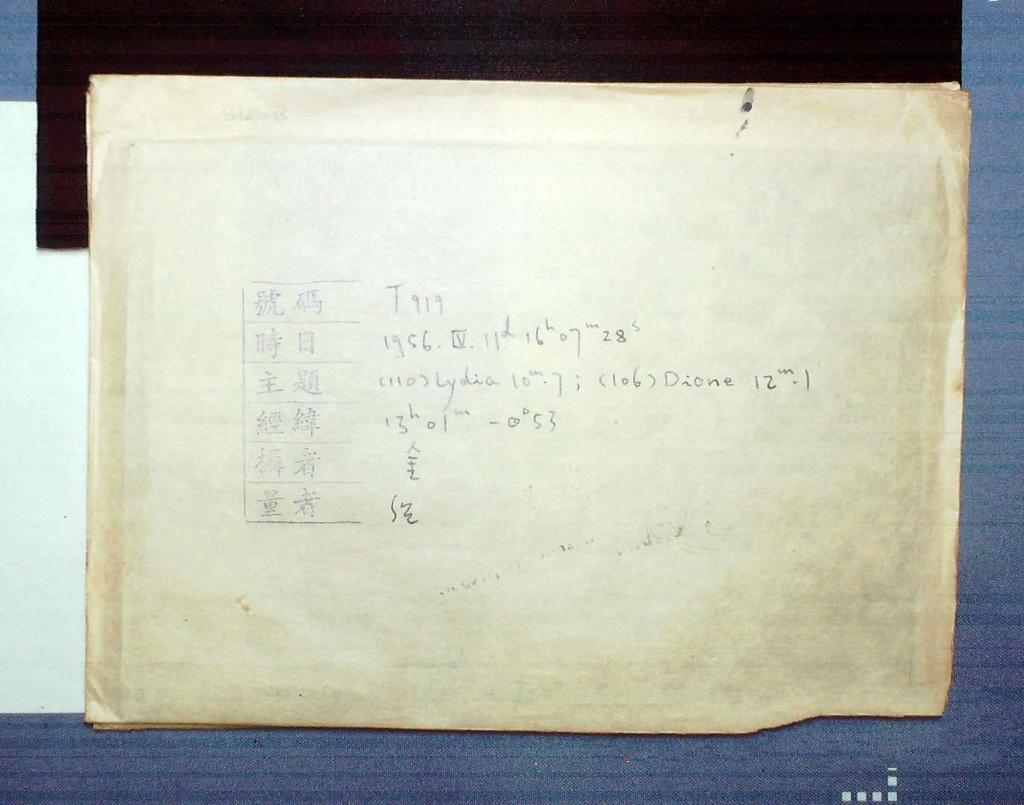 號碼 T919
時日 1956. IV. 11ᵈ 16ʰ 07ᵐ 28ˢ
主題 (110) Lydia 10ᵐ.7 ; (106) Dione 12ᵐ.1
經緯 13ʰ 01ᵐ -0°53
攝者
量者